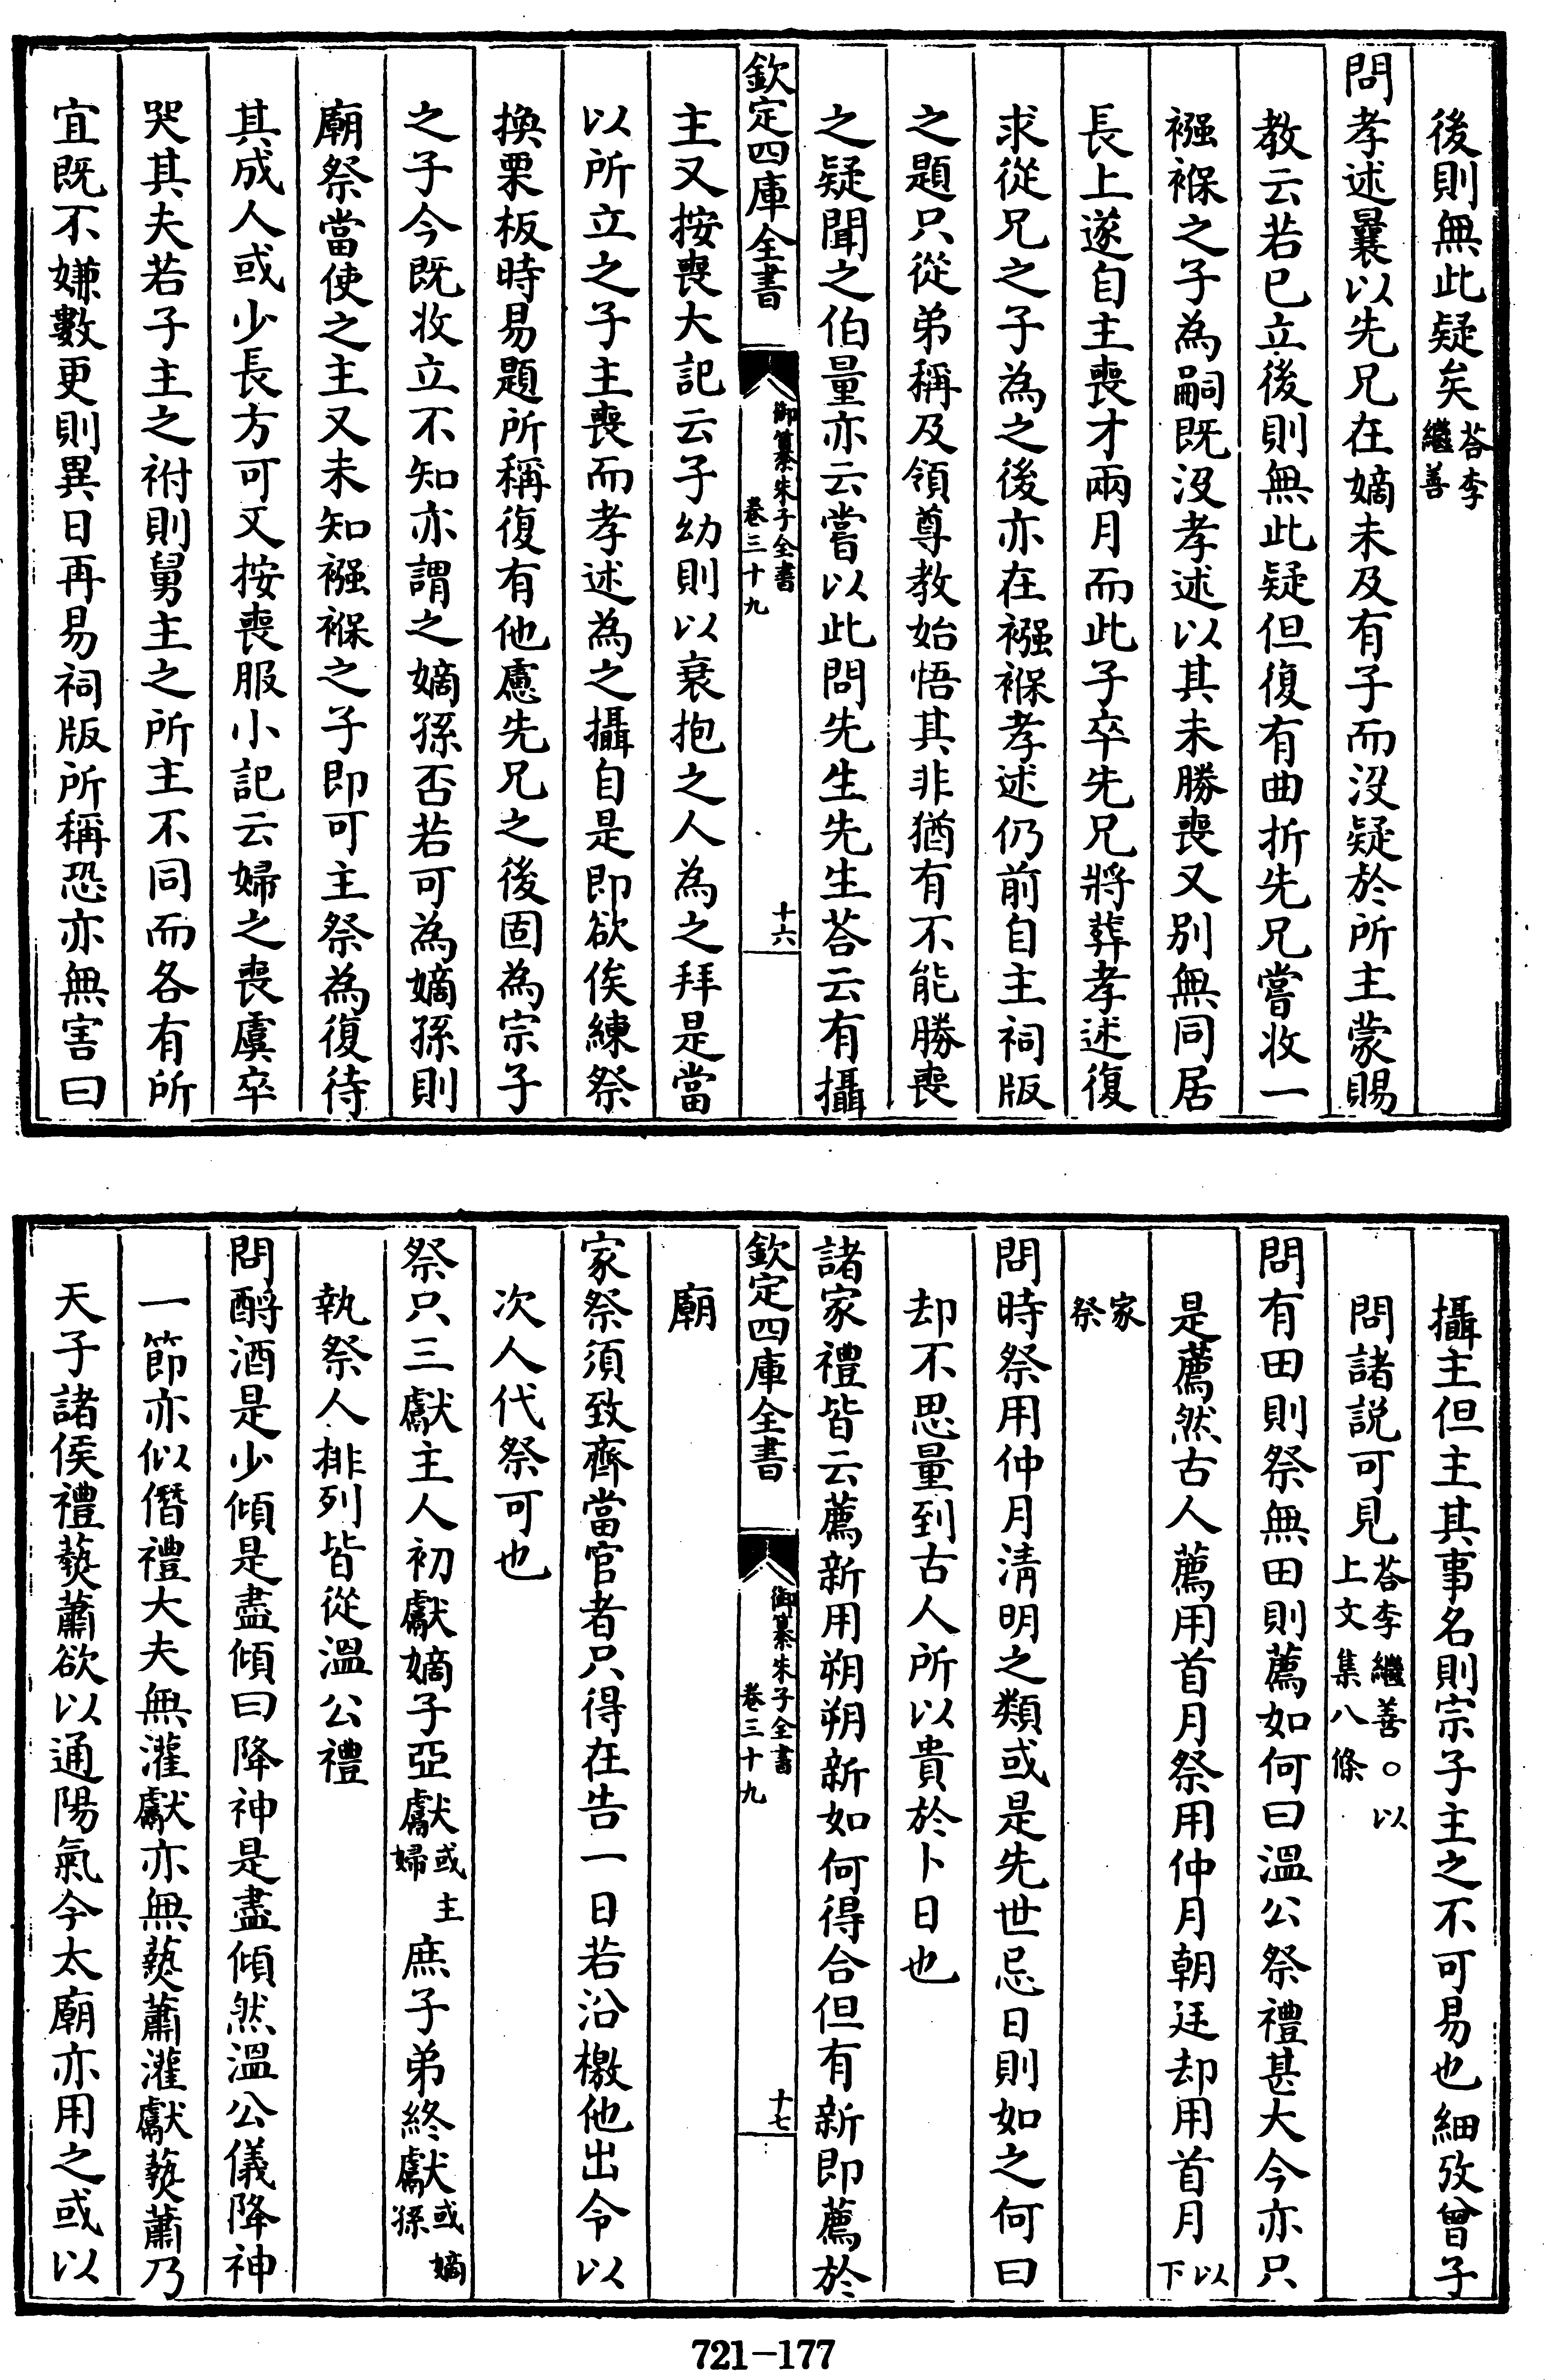 後則無此疑矣荅李繼善
問孝述曩以先兄在嫡未及有子而沒疑於所主蒙賜
教云若已立後則無此疑但復有曲折先兄嘗收一
襁褓之子為嗣既沒孝述以其未勝喪又別無同居
長上遂自主喪才兩月而此子卒先兄將葬孝述復
求從兄之子為之後亦在襁褓孝述仍前自主祠版
之題只從弟稱及領尊教始悟其非猶有不能勝喪
之疑聞之伯量亦云嘗以此問先生先生荅云有攝
欽定四庫全書 御纂朱子全書 卷三十九 十六
主又按喪大記云子幼則以衰抱之人為之拜是當
以所立之子主喪而孝述為之攝自是即欲俟練祭
換栗板時易題所稱復有他慮先兄之後固為宗子
之子今既收立不知亦謂之嫡孫否若可為嫡孫則
廟祭當使之主又未知襁褓之子即可主祭為復待
其成人或少長方可又按喪服小記云婦之喪虞卒
哭其夫若子主之祔則舅主之所主不同而各有所
宜既不嫌數更則異日再易祠版所稱恐亦無害曰
攝主但主其事名則宗子主之不可易也細攷曾子
問諸説可見荅李繼善○以上文集八條
問有田則祭無田則薦如何曰溫公祭禮甚大今亦只
是薦然古人薦用首月祭用仲月朝廷却用首月以下
家祭
問時祭用仲月清明之類或是先世忌日則如之何曰
却不思量到古人所以貴於卜日也
諸家禮皆云薦新用朔朔新如何得合但有新即薦於
欽定四庫全書 御纂朱子全書 卷三十九 十七
廟
家祭須致齊當官者只得在告一日若沿檄他出令以
次人代祭可也
祭只三獻主人初獻嫡子亞獻或主婦庶子弟終獻或嫡孫
執祭人排列皆從溫公禮
問酹酒是少傾是盡傾曰降神是盡傾然溫公儀降神
一節亦似僭禮大夫無灌獻亦無爇蕭灌獻爇蕭乃
天子諸侯禮爇蕭欲以通陽氣今太廟亦用之或以
721-177